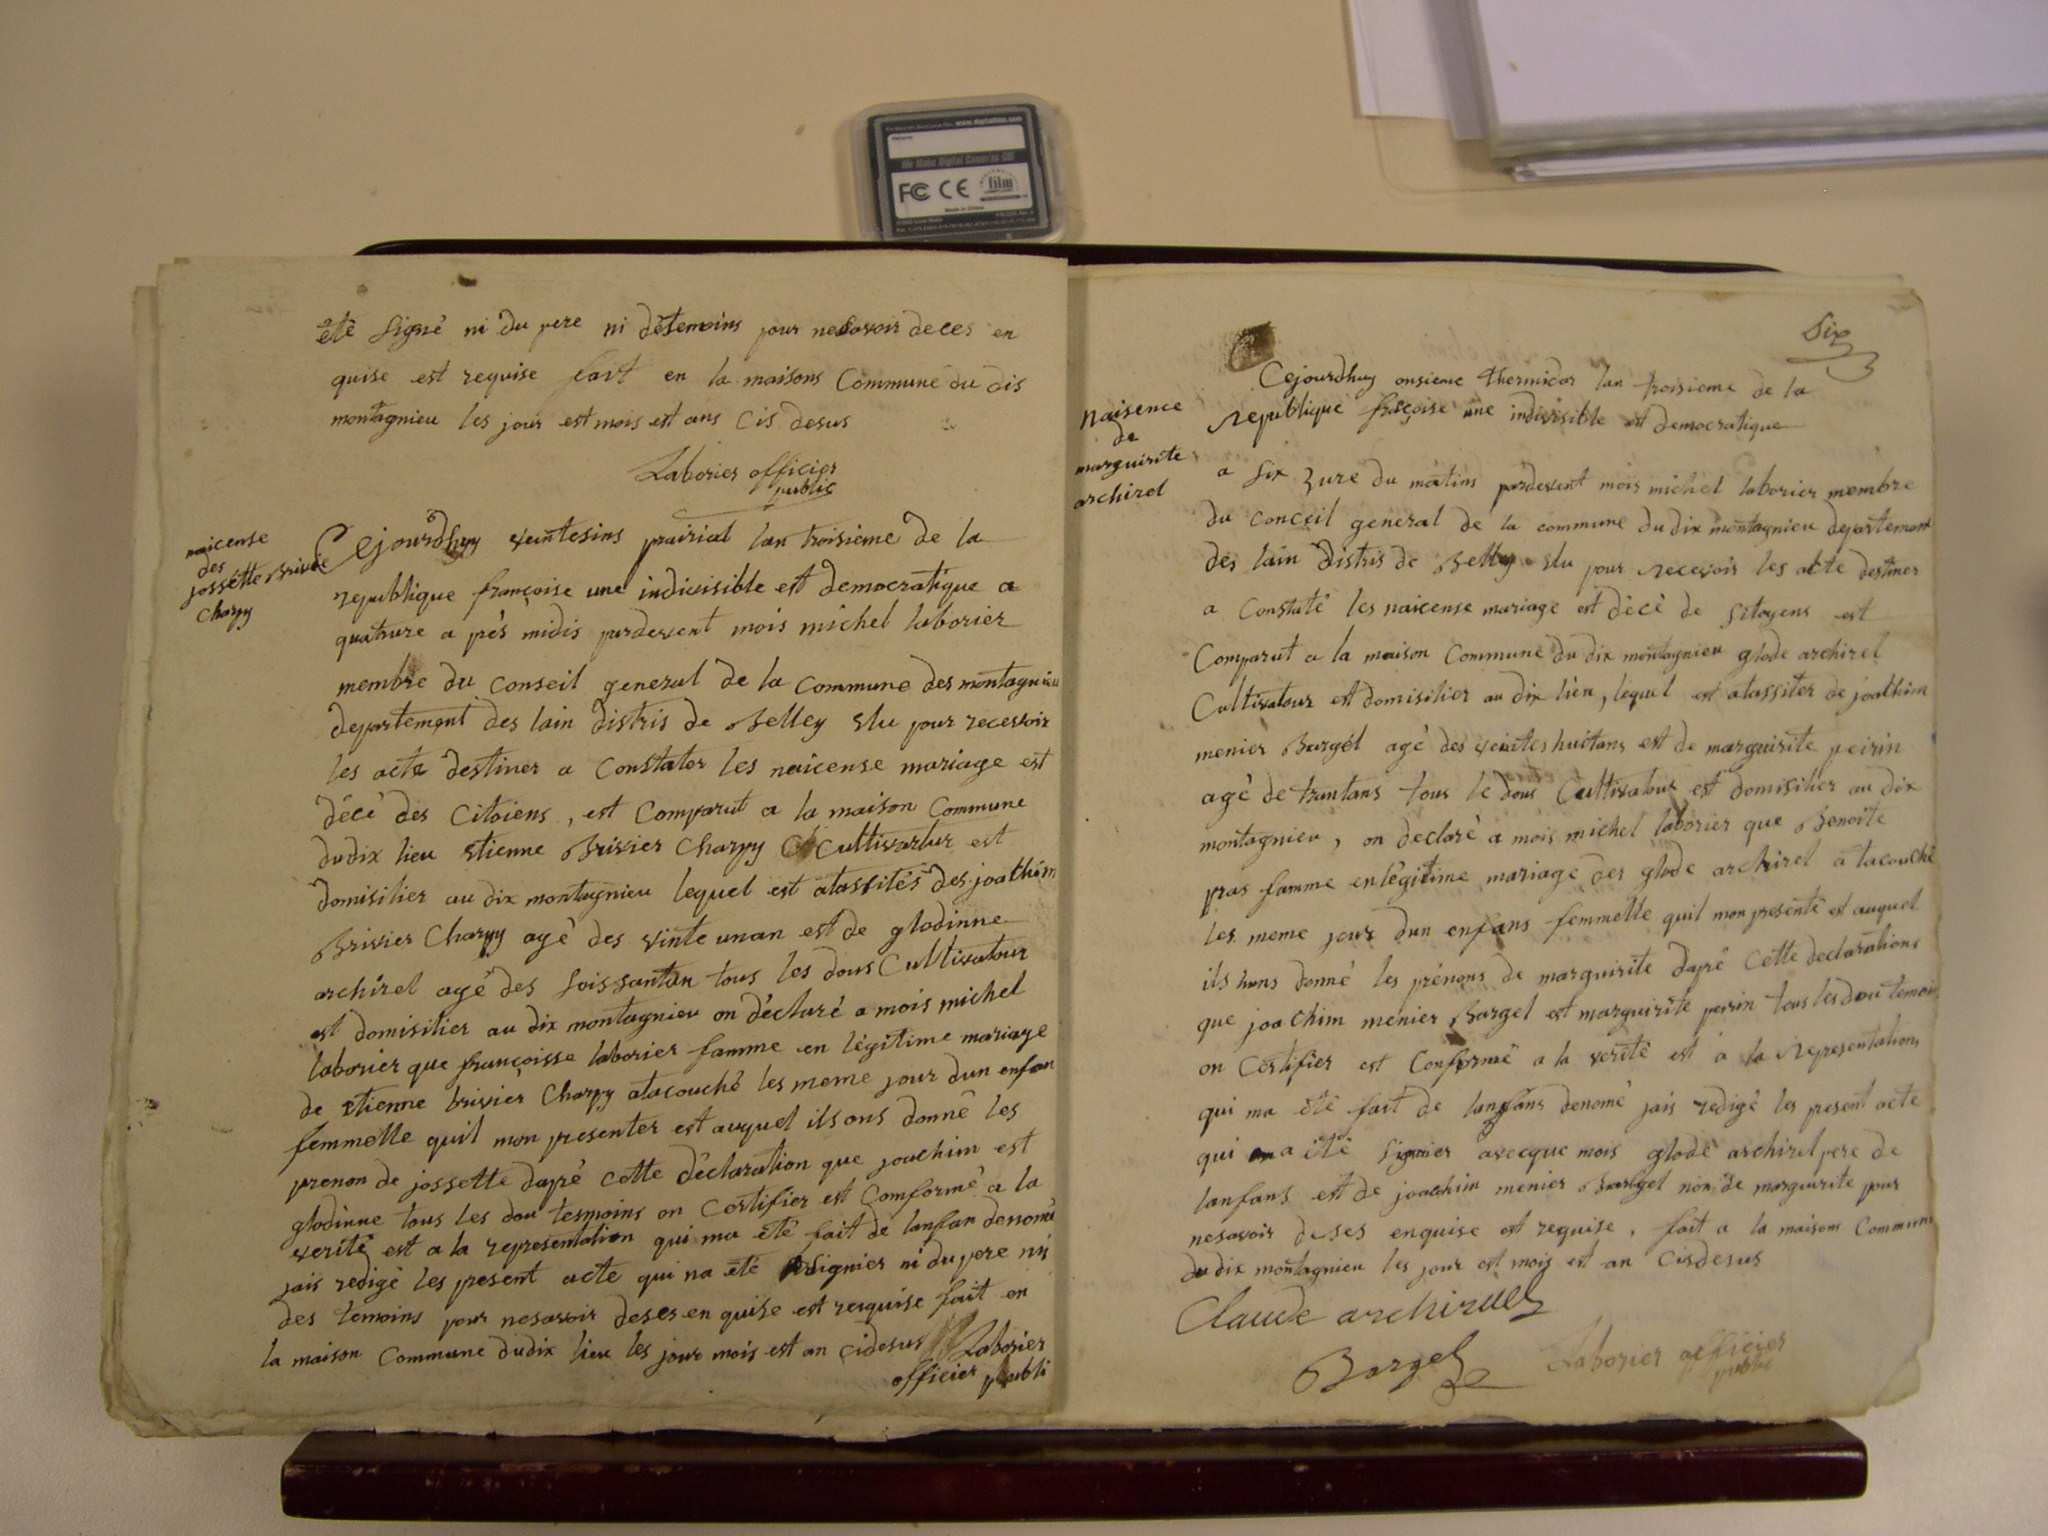 www.digitalfilm.com
We Make Digital Cameras GO!
FC CE film
Made in China
été signé ni du pere ni détemoins pour nesavoir deces en
quise est requise fait en la maisons Commune du dis
montagnieu les jour est mois est ans Cis desus
Laborier officier
public
naicense
des
jossette Brivié
Charpy
Cejourdhuy veintesins prairial lan troisieme de la
republique françoise une indivisible est democratique a
quatrure a pés midis pardevent mois michel laborier
membre du conseil general de la Commune des montagnieu
departement des lain distris de Belley Elu pour recevoir
les acte destiner a Constater les naicense mariage est
décé des Citoiens, est Comparut a la maison Commune
dudix lieu Etienne Brivier Charpy Cultivatur est
domisilier au dix montagnieu lequel est atassités des joathim
Brivier Charpy agé des vinte unan est de glodinne
archirel agé des soissantan tous les dous Cultivatour
est domisilier au dix montagnieu on déclaré a mois michel
laborier que françoisse laborier famme en légitime mariage
de Etienne brivier Charpy atacouché les meme jour dun enfan
femmelle quil mon presenter est auquel ils ons donné les
prenon de jossette dapré cette déclaration que joachim est
glodinne tous les dou tesmoins on Certifier est Comformé a la
verité est a la representation qui ma été fait de lanfan denomé
jais redigé les present acte qui na été signier ni du pere ni
des temoins pour nesavoir deses en quise est requise fait en
la maison Commune dudix lieu les jour mois est an cidesus Laborier
officier publi
Six
naisence
de
marguirite
archirel
Cejourdhuy onsieme thermidor lan troisieme de la
republique fraçoise une indivisible est democratique
a six zure du matins pardevent mois michel laborier membre
du Conceil general de la commune du dix montagnieu departement
des lain distris de Belley Elu pour recevoir les acte destiner
a Constaté les naicense mariage est décé de sitoyens est
Comparut a la maison Commune du dix montagnieu glode archirel
Cultivatour est domisilier au dix lieu, lequel est atassiter de joathim
menier Bargél agé des veinteshuitans est de marguirite peirin
agé de trantans tous le dous Cultivatour est domisilier au dix
montagnieu, on declaré a mois michel laborier que Benoite
pras famme en légitime mariage des glode archirel a tacouché
les meme jour dun enfans femmelle quil mon presenté est auquel
ils hons donné les prénons de marguirite dapré Cette declarations
que joachim menier Bargel est marguirite peirin tous les dou temoin
on Certifier est Conformé a la verité est a la representations
qui ma été fait de lanfans denomé jais redigé les present acte
qui a été signier avecque mois glode archirel pere de
lanfans est de joachim menier Bargel non de margurite pour
nesavoir de ses enquise est requise, fait a la maisons Commune
du dix montagnieu les jour est mois est an Cisdesus
Claude archiruel
Bargel
Laborier officier
public